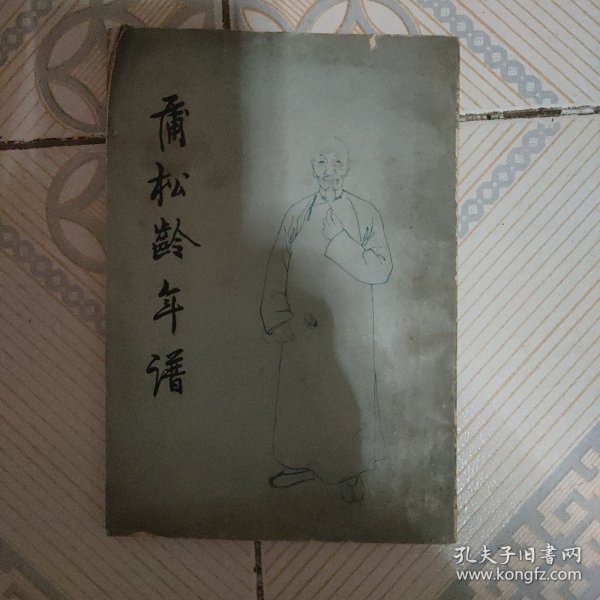 蒲松龄年谱
孔夫子旧书网
www.kongfz.com